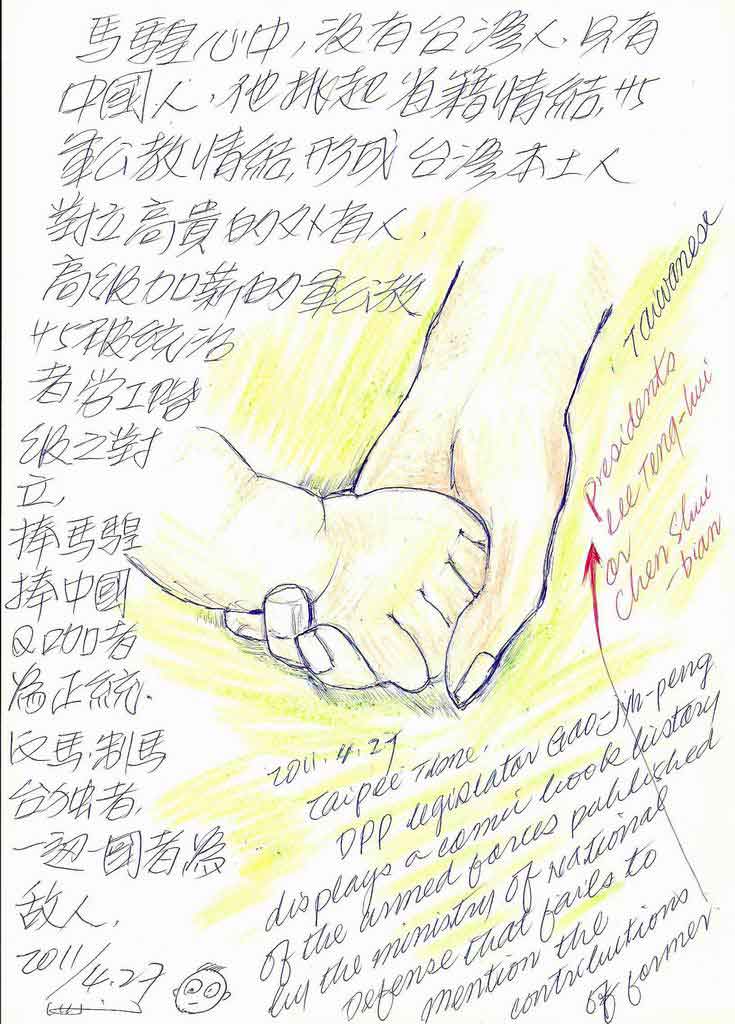 馬騜心中,沒有台灣人.只有
中國人,他挑起省籍情結,
軍公教情結,形成台灣本土人
對立高貴的外省人,
高級加薪的軍公教
被統治
者勞工階
級之對
立,
捧馬騜
捧中國
Q咖者
為正統.
反馬.制馬
台獨者,
一邊一國者為
敵人,
2011/4.27
2011.4.27
Taipei Time.
DPP legislator Gao-Jyh-peng
displays a comic book history
of the armed forces published
by the ministry of national
Defense that fails to
mention the
contributions
of former.
Taiwanese
presidents
Lee Teng-hui
or
Chen Shui
-bian